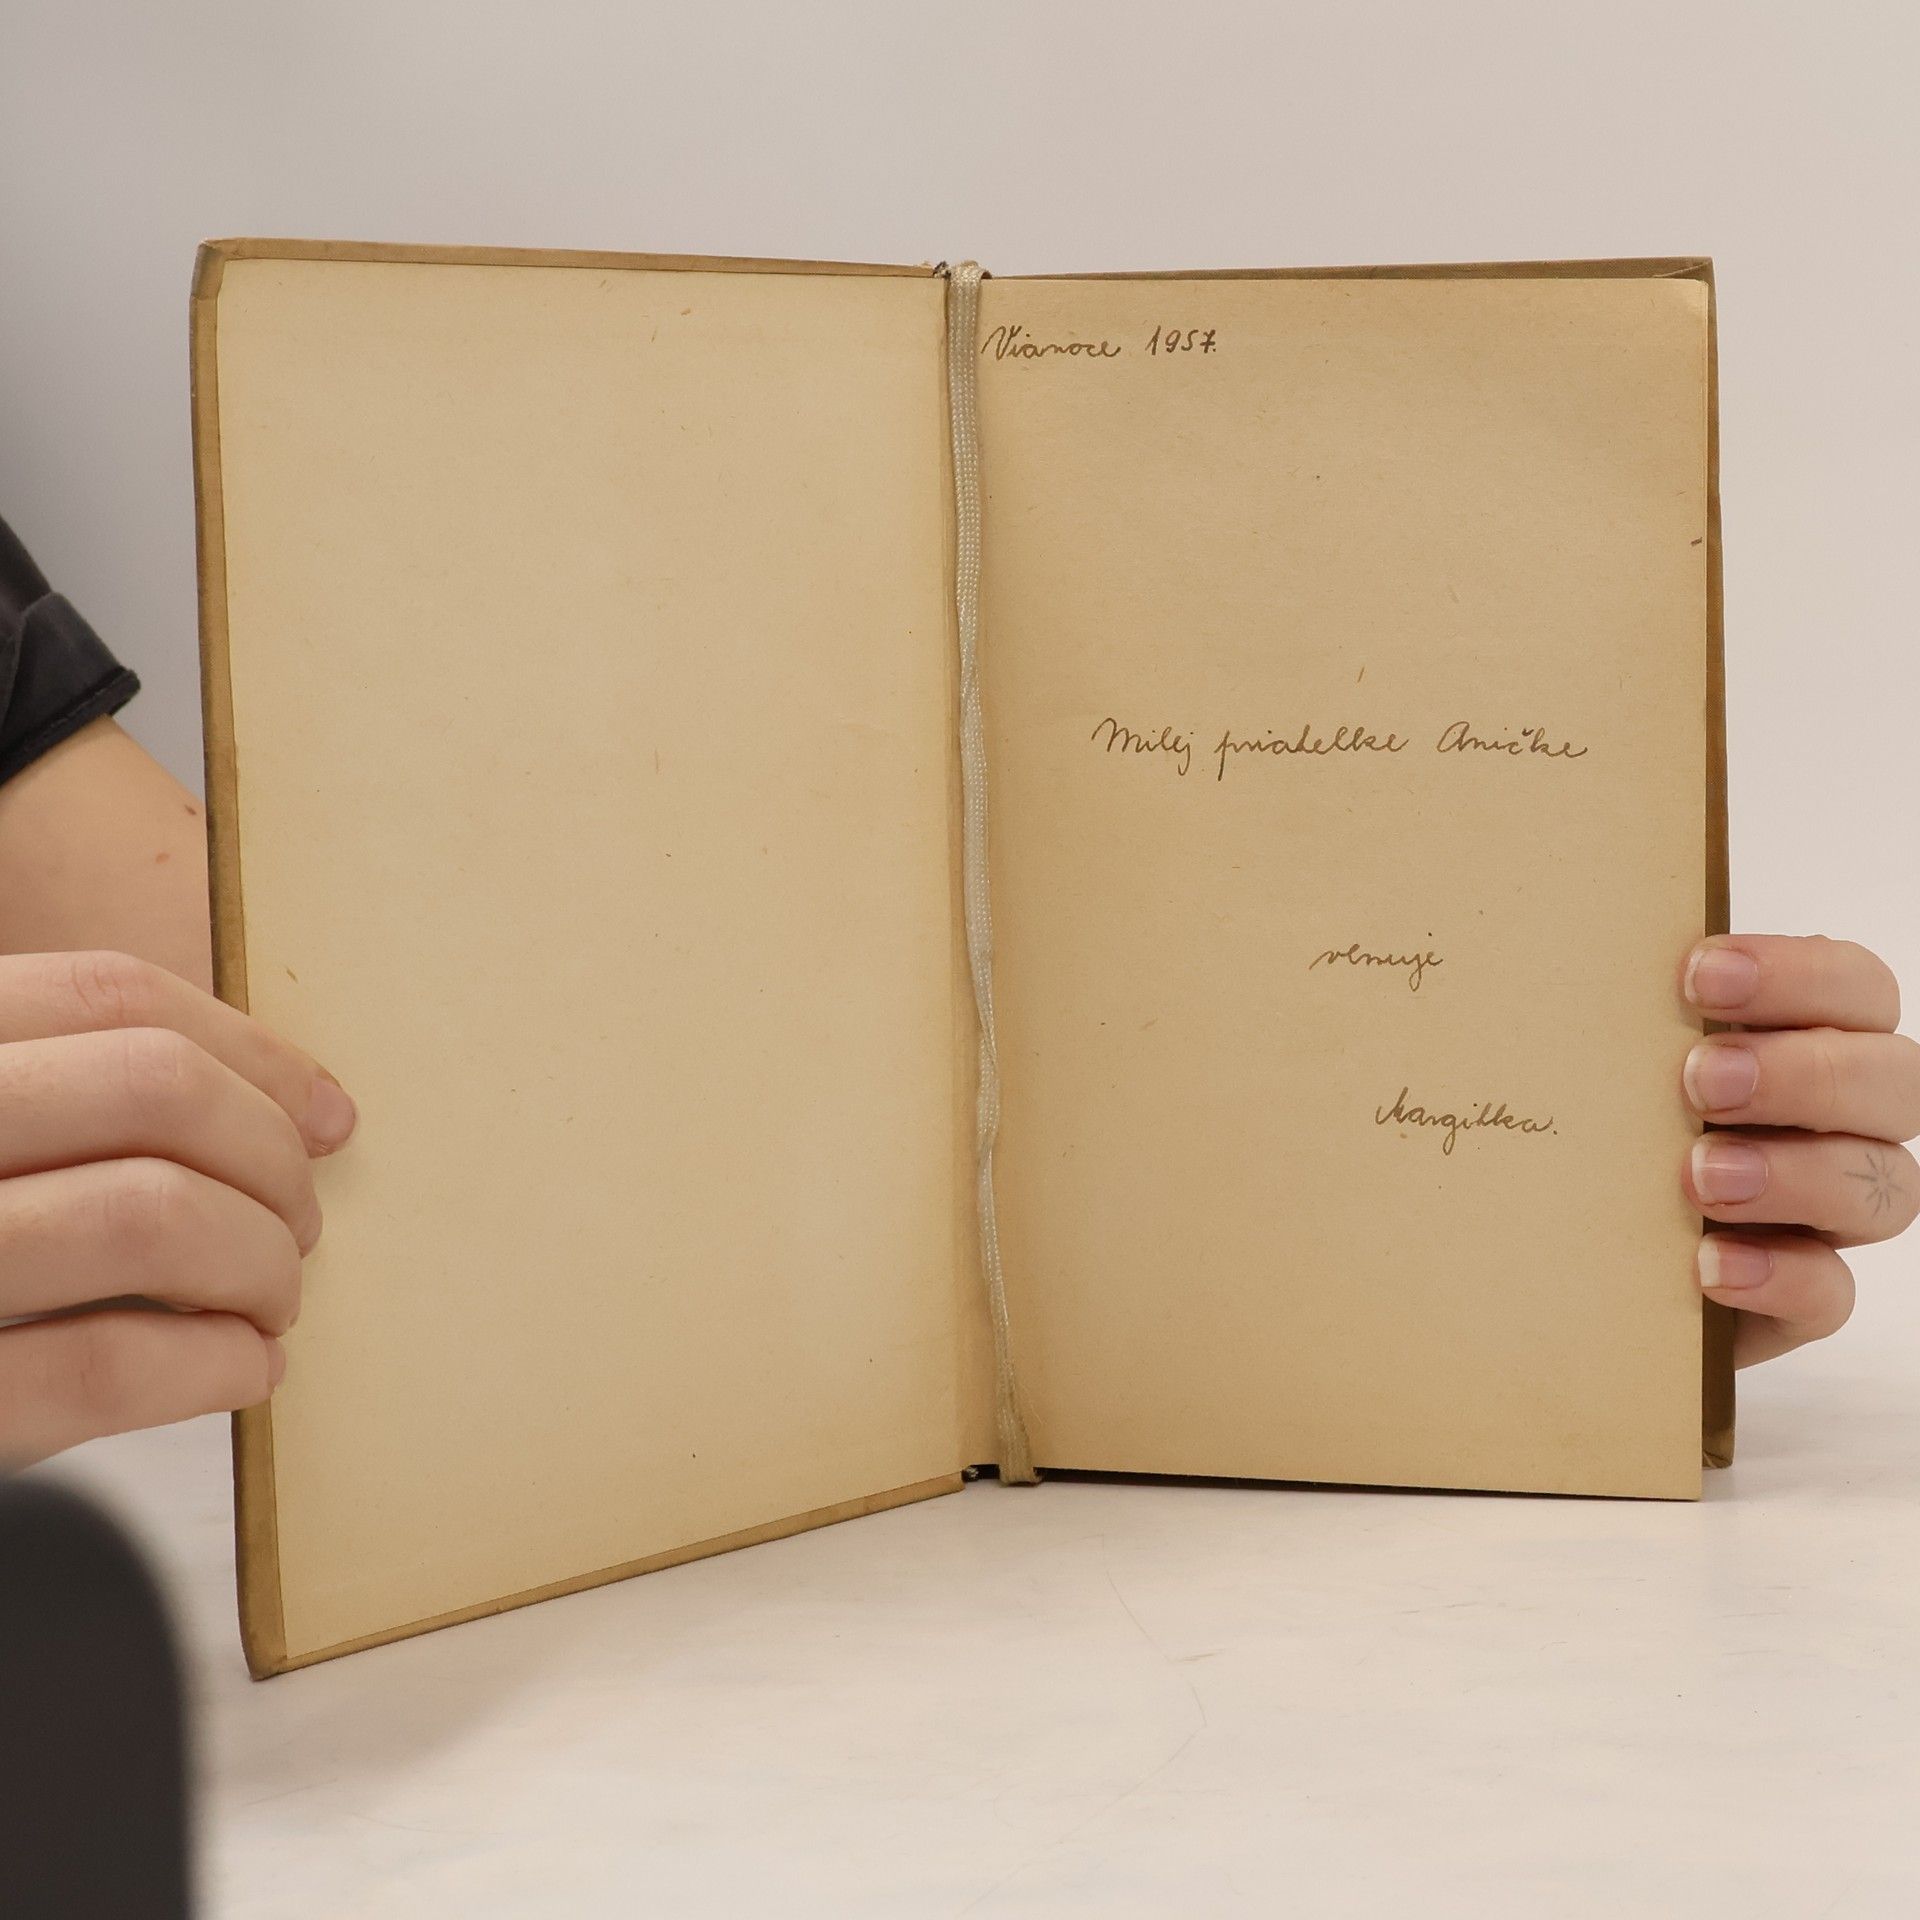 Vianoce 1957.
Milej priatelke Aničke
venuje
Margitka.